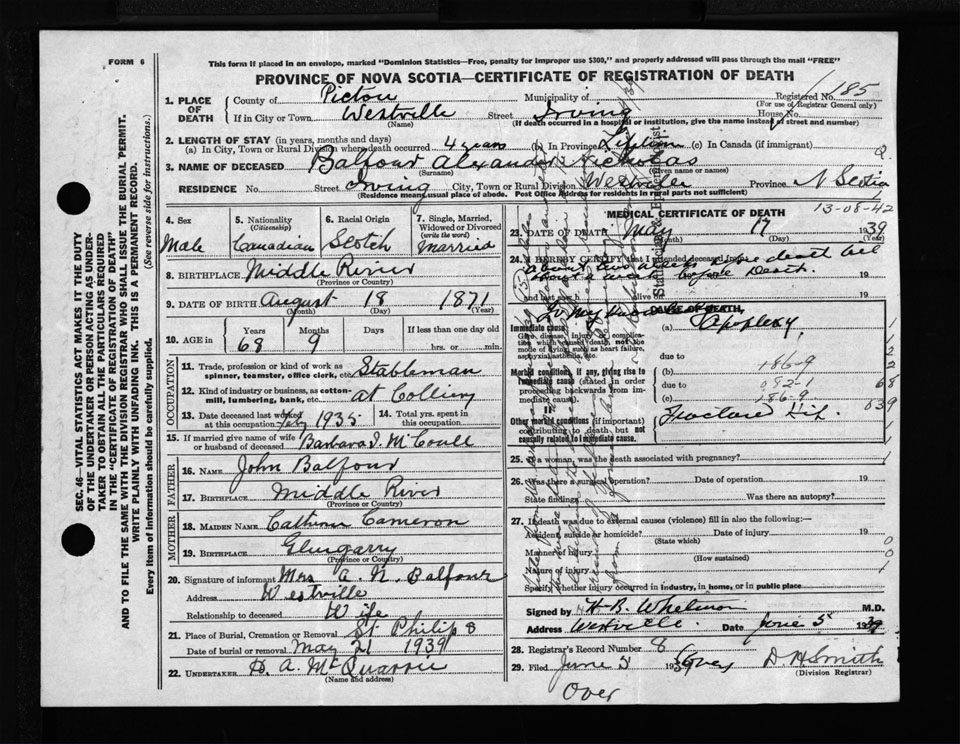 FORM 6
This form if placed in an envelope, marked "Dominion Statistics—Free, penalty for improper use $300," and properly addressed will pass through the mail "FREE"
PROVINCE OF NOVA SCOTIA—CERTIFICATE OF REGISTRATION OF DEATH
Registered No. 185
(For use of Registrar General only)
1. PLACE OF DEATH
County of Pictou Municipality of
If in City or Town Westville Street Irving House No.
(Name) (If death occurred in a hospital or institution, give the name instead of street and number)
2. LENGTH OF STAY (in years, months and days)
(a) In City, Town or Rural Division where death occurred 4 years (b) In Province Lifetime (c) In Canada (if immigrant)
3. NAME OF DECEASED Balfour Alexander Nicholas
(Surname) (Given name or names)
RESIDENCE No. Street Irving City, Town or Rural Division Westville Province N Scotia
(Residence means usual place of abode. Post Office Address for residents in rural parts not sufficient)
4. Sex Male
5. Nationality (Citizenship) Canadian
6. Racial Origin Scotch
7. Single, Married, Widowed or Divorced (write the word) Married
8. BIRTHPLACE Middle River
(Province or Country)
9. DATE OF BIRTH August 18 1871
(Month) (Day) (Year)
10. AGE in Years Months Days If less than one day old
68 9 hrs. or min.
OCCUPATION
11. Trade, profession or kind of work as spinner, teamster, office clerk, etc. Stableman
12. Kind of industry or business, as cotton-mill, lumbering, bank, etc. at Colliery
13. Date deceased last worked at this occupation July 1935
14. Total yrs. spent in this occupation
15. If married give name of wife or husband of deceased Barbara I. McCoull
FATHER
16. NAME John Balfour
17. BIRTHPLACE Middle River
(Province or Country)
MOTHER
18. MAIDEN NAME Cameron
19. BIRTHPLACE Glengarry
(Province or Country)
20. Signature of informant Mrs A. N. Balfour
Address Westville
Relationship to deceased Wife
21. Place of Burial, Cremation or Removal St Philip's
Date of burial or removal May 21 1939
22. UNDERTAKER D. A. McQuarrie
(Name and address)
MEDICAL CERTIFICATE OF DEATH
13-08-42
23. DATE OF DEATH May 17 1939
(Month) (Day) (Year)
24. I HEREBY CERTIFY that I attended deceased from
about two weeks before death
about a week before Death.
and last saw h alive on 19
CAUSE OF DEATH
Immediate cause (a) Apoplexy
Give disease, injury or complication which caused death, not the mode of dying, such as heart failure, asphyxia, asthenia, etc.
due to
Morbid conditions, if any, giving rise to immediate cause (stated in order proceeding backwards from immediate cause).
(b) 186-9
due to 082-1
(c) 186-9
Other morbid conditions (if important) contributing to death, but not causally related to immediate cause.
Fracture Hip
1
1
2
2
68
839
1
25. If a woman, was the death associated with pregnancy?
26. Was there a surgical operation? Date of operation 19
State findings Was there an autopsy?
27. If death was due to external causes (violence) fill in also the following:—
Accident, suicide or homicide? Date of injury 19
(State which)
Manner of injury
(How sustained)
Nature of injury
Specify whether injury occurred in industry, in home, or in public place
0
0
1
Signed by M.D.
Address Westville. Date June 5 1939
28. Registrar's Record Number 8
29. Filed June 5 1939 D H Smith
(Division Registrar)
Over
SEC. 46—VITAL STATISTICS ACT MAKES IT THE DUTY
OF THE UNDERTAKER OR PERSON ACTING AS UNDER-
TAKER TO OBTAIN ALL THE PARTICULARS REQUIRED
IN THE "CERTIFICATE OF REGISTRATION OF DEATH"
AND TO FILE THE SAME WITH THE DIVISION REGISTRAR WHO SHALL ISSUE THE BURIAL PERMIT.
WRITE PLAINLY WITH UNFADING INK. THIS IS A PERMANENT RECORD.
Every item of information should be carefully supplied. (See reverse side for instructions.)